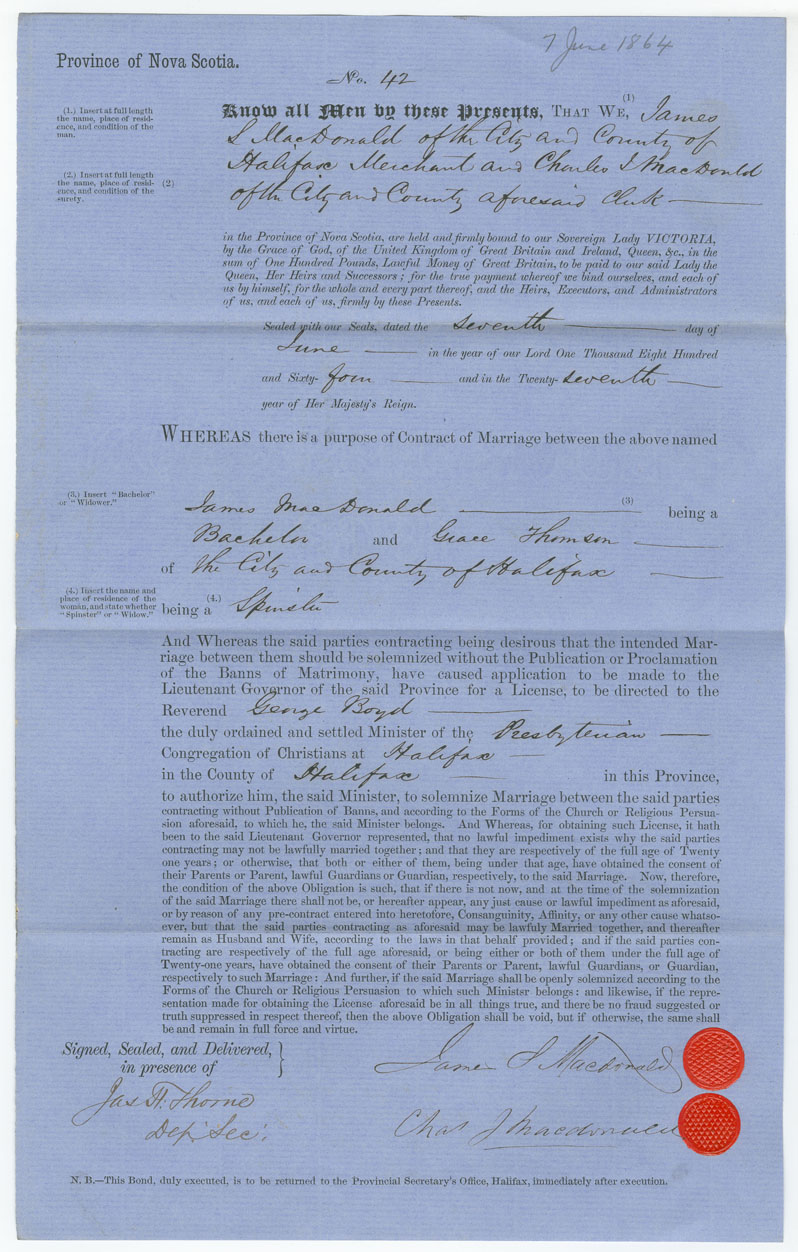 7 June 1864
Province of Nova Scotia.
No. 42
(1.) Insert at full length
the name, place of resid-
ence, and condition of the
man.
(2.) Insert at full length
the name, place of resid-
ence, and condition of the
surety.
(1)
Know all Men by these Presents, THAT WE, James
S MacDonald of the City and County of
Halifax Merchant and Charles J MacDonald
(2) of the City and County aforesaid Clerk
in the Province of Nova Scotia, are held and firmly bound to our Sovereign Lady VICTORIA,
by the Grace of God, of the United Kingdom of Great Britain and Ireland, Queen, &c., in the
sum of One Hundred Pounds, Lawful Money of Great Britain, to be paid to our said Lady the
Queen, Her Heirs and Successors; for the true payment whereof we bind ourselves, and each of
us by himself, for the whole and every part thereof, and the Heirs, Executors, and Administrators
of us, and each of us, firmly by these Presents.
Sealed with our Seals, dated the seventh day of
June in the year of our Lord One Thousand Eight Hundred
and Sixty- four and in the Twenty- seventh
year of Her Majesty's Reign.
WHEREAS there is a purpose of Contract of Marriage between the above named
(3.) Insert "Bachelor"
or "Widower."
James MacDonald (3) being a
Bachelor and Grace Thomson
of the City and County of Halifax
(4.) Insert the name and
place of residence of the
woman, and state whether
"Spinster" or "Widow."
being a (4.) Spinster
And Whereas the said parties contracting being desirous that the intended Mar-
riage between them should be solemnized without the Publication or Proclamation
of the Banns of Matrimony, have caused application to be made to the
Lieutenant Governor of the said Province for a License, to be directed to the
Reverend George Boyd
the duly ordained and settled Minister of the Presbyterian
Congregation of Christians at Halifax
in the County of Halifax in this Province,
to authorize him, the said Minister, to solemnize Marriage between the said parties
contracting without Publication of Banns, and according to the Forms of the Church or Religious Persua-
sion aforesaid, to which he, the said Minister belongs. And Whereas, for obtaining such License, it hath
been to the said Lieutenant Governor represented, that no lawful impediment exists why the said parties
contracting may not be lawfully married together; and that they are respectively of the full age of Twenty
one years; or otherwise, that both or either of them, being under that age, have obtained the consent of
their Parents or Parent, lawful Guardians or Guardian, respectively, to the said Marriage. Now, therefore,
the condition of the above Obligation is such, that if there is not now, and at the time of the solemnization
of the said Marriage there shall not be, or hereafter appear, any just cause or lawful impediment as aforesaid,
or by reason of any pre-contract entered into heretofore, Consanguinity, Affinity, or any other cause whatso-
ever, but that the said parties contracting as aforesaid may be lawfuly Married together, and thereafter
remain as Husband and Wife, according to the laws in that behalf provided; and if the said parties con-
tracting are respectively of the full age aforesaid, or being either or both of them under the full age of
Twenty-one years, have obtained the consent of their Parents or Parent, lawful Guardians, or Guardian,
respectively to such Marriage: And further, if the said Marriage shall be openly solemnized according to the
Forms of the Church or Religious Persuasion to which such Ministsr belongs: and likewise, if the repre-
sentation made for obtaining the License aforesaid be in all things true, and there be no fraud suggested or
truth suppressed in respect thereof, then the above Obligation shall be void, but if otherwise, the same shall
be and remain in full force and virtue.
Signed, Sealed, and Delivered,
in presence of
James S Macdonald
Jas H. Thorne
Dep. Sec.
Chas J Macdonald
N. B.—This Bond, duly executed, is to be returned to the Provincial Secretary's Office, Halifax, immediately after execution.